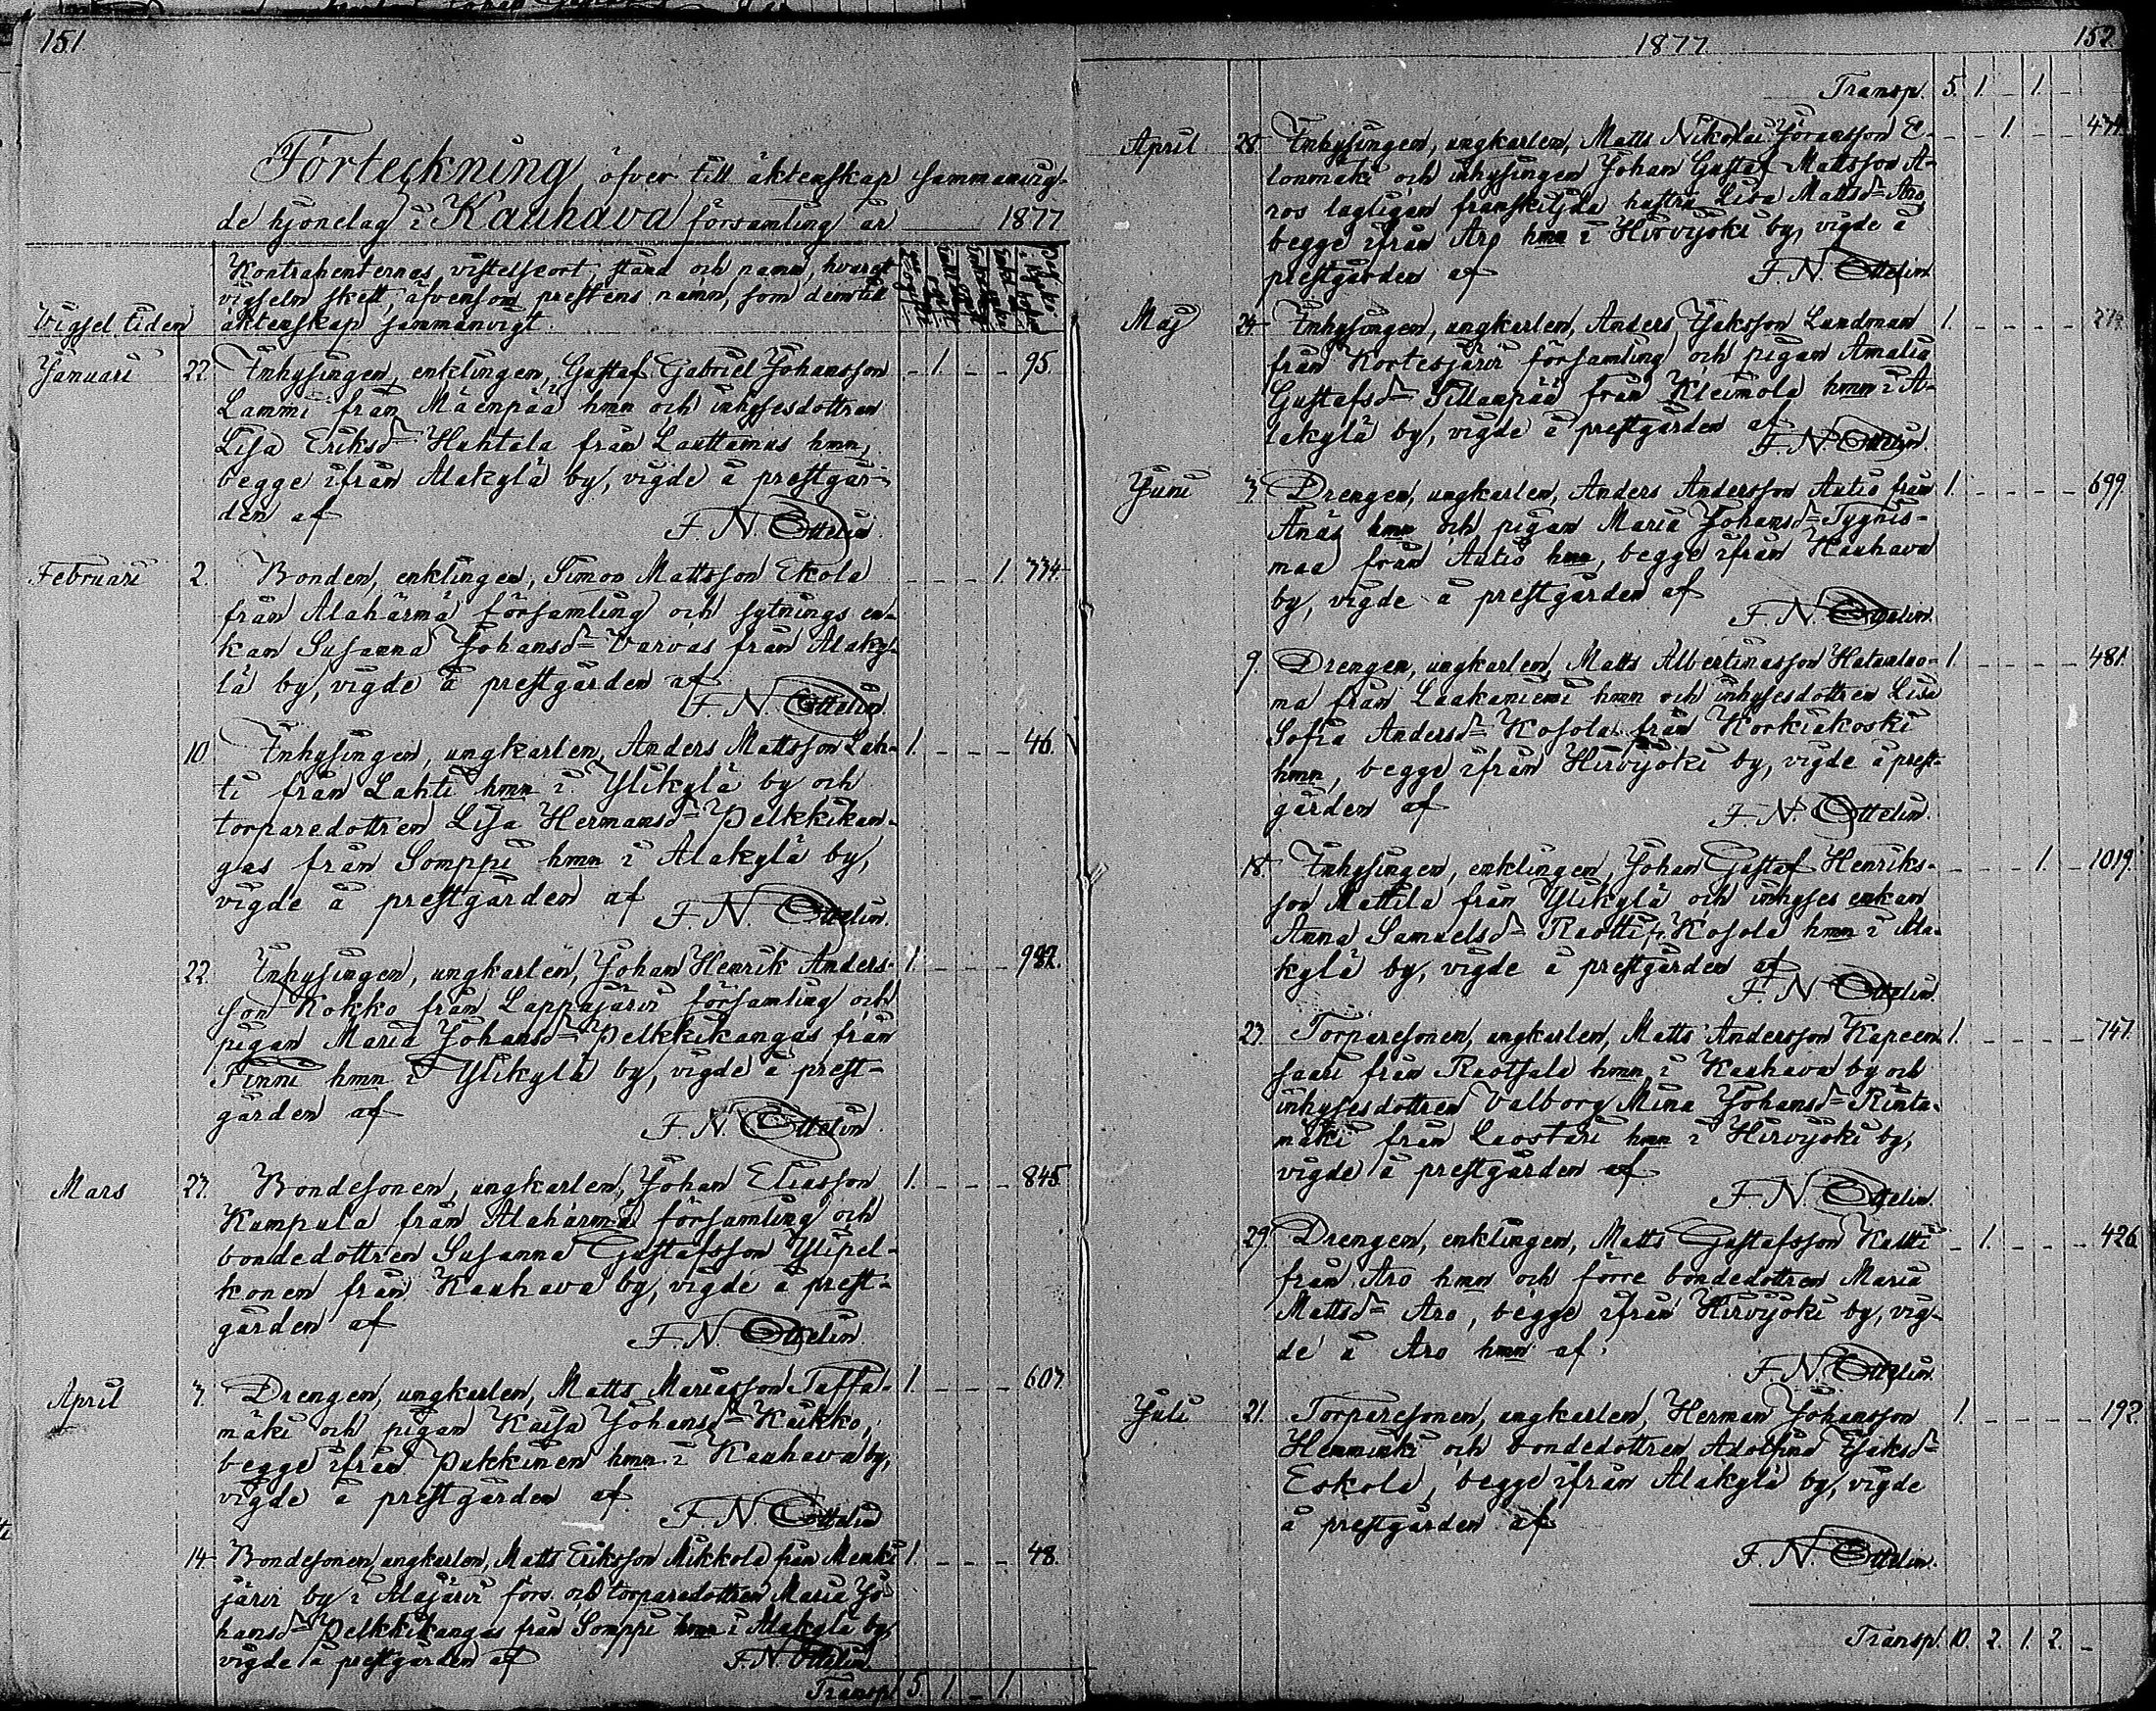 151
Förteckning öfver till äktenskap sammanvig-
de hjonelag i Kauhava församling år 1877
Kontrahenternas vistelseort, stånd och namn, hvarest
vigseln skett, äfvensom prestens namn, som dem till
Vigsel tiden äktenskap sammanvigt.
Januari 22. Inhysingen, enklingen, Gustaf Gabriel Johansson - 1. - - 95.
Lammi från Mäenpää hmn och inhysesdottren
Lisa Eriksd:r Huhtala från Lauttamus hmn,
begge ifrån Alakylä by, vigde å prestgår-
den af F. N. Ottelin.
Februari 2. Bonden, enklingen, Simon Mattsson Ekola - - - 1. 334.
från Alahärmä församling och sytnings en-
kan Susanna Johansd:r Varvas från Alaky-
lä by, vigde å prestgården af
F. N. Ottelin.
10. Inhysingen, ungkarlen, Anders Mattsson Lah- 1. - - - 46.
ti från Lahti hmn i Ylikylä by och
torparedottren Lisa Hermansd:r Pelkkikan-
gas från Somppi hmn i Alakylä by,
vigde å prestgården af F. N. Ottelin.
22. Inhysingen, ungkarlen, Johan Henrik Anders- 1. - - -
son Kokko från Lappajärvi församling och
pigan Maria Johansd:r Pelkkikangas från
Finni hmn i Ylikylä by, vigde å prest-
gården af F. N. Ottelin.
Mars 27. Bondesonen, ungkarlen, Johan Eliasson 1. - - - 845.
Kampula från Alahärmä församling och
bondedottren Susanna Gustafsson Ylipel-
konen från Kauhava by, vigde å prest-
gården af F. N. Ottelin
April 7. Drengen, ungkarlen, Matts Mariasson Tassa- 1. - - - 607.
mäki och pigan Kaisa Johansd:r Kukko,
begge ifrån Pukkinen hmn i Kauhava by,
vigde å prestgården af
F. N. Ottelin
14. Bondesonen, ungkarlen, Matts Eriksson Mikkola från Menki 1. - - - 48.
järvi by i Alajärvi förs. och torparedottren Maria Jo-
hansd:r Pelkkikangas från Somppi hmn i Alakylä by,
vigde å prestgården af F. N. Ottelin
Transp. 5 1 - 1.
1877. 152.
Transp. 5. 1. - 1. -
April 28. Inhysingen, ungkarlen, Matts Nikolai Göransson E- - - 1. - -
lonmäki och inhysingen Johan Gustaf Mattsson A-
ros lagligen frånskiljda hustru Lisa Mattsd:r Aro,
begge ifrån Aro hmn i Hirvijoki by, vigde å
prestgården af F. N. Ottelin
Maj 24. Inhysingen, ungkarlen, Anders Isaksson Lundman 1. - - - -
från Kortesjärvi församling och pigan Amalia
Gustafsd:r Sillanpää från Kleimola hmn i A-
lakylä by, vigde å prestgården af
F. N. Ottelin.
Juni 3. Drengen, ungkarlen, Anders Andersson Autio från 1. - - - - 699.
Änäs hmn och pigan Maria Johansd:r Tygnis-
maa från Autio hmn, begge ifrån Kauhava
by, vigde å prestgården af
F. N. Ottelin.
9. Drengen, ungkarlen, Matts Albertinasson Hatanluo- 1. - - - - 481.
ma från Laakaniemi hmn och inhysesdottren Lisa
Sofia Andersd:r Kosola från Korkiakoski
hmn, begge ifrån Hirvijoki by, vigde å prest-
gården af F. N. Ottelin.
18. Inhysingen, enklingen, Johan Gustaf Henriks- - - - 1. - 1019.
son Mattila från Ylikylä och inhyses enkan
Anna Samuelsd:r Ruotti fr. Kosola hmn i Ala-
kylä by, vigde å prestgården af
F. N. Ottelin.
23. Torparesonen, ungkarlen, Matts Andersson Kapeen- 1. - - - - 747.
saari från Ruotsala hmn i Kauhava by och
inhysesdottren Valborg Mina Johansd:r Rinta-
mäki från Luostari hmn i Hirvijoki by,
vigde å prestgården af
F. N. Ottelin.
29. Drengen, enklingen, Matts Gustafsson Kultti - 1. - - - 426.
från Aro hmn och förre bondedottren Maria
Mattsd:r Aro, begge ifrån Hirvijoki by, vig-
de å Aro hmn af
F. N. Ottelin.
Juli 21. Torparesonen, ungkarlen, Herman Johansson 1. - - - - 192.
Hemminki och bondedottren Adolfina Isaksd:r
Eskola, begge ifrån Alakylä by, vigde
å prestgården af
F. N. Ottelin.
Transp. 10. 2. 1. 2. -